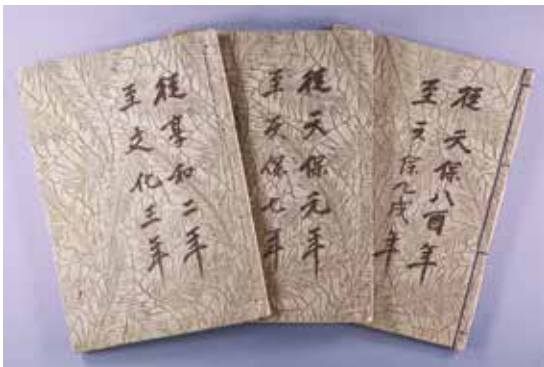 從享和二年
至文化三年
從天保元年
至天保七年
從天保八酉年
至天保九戌年